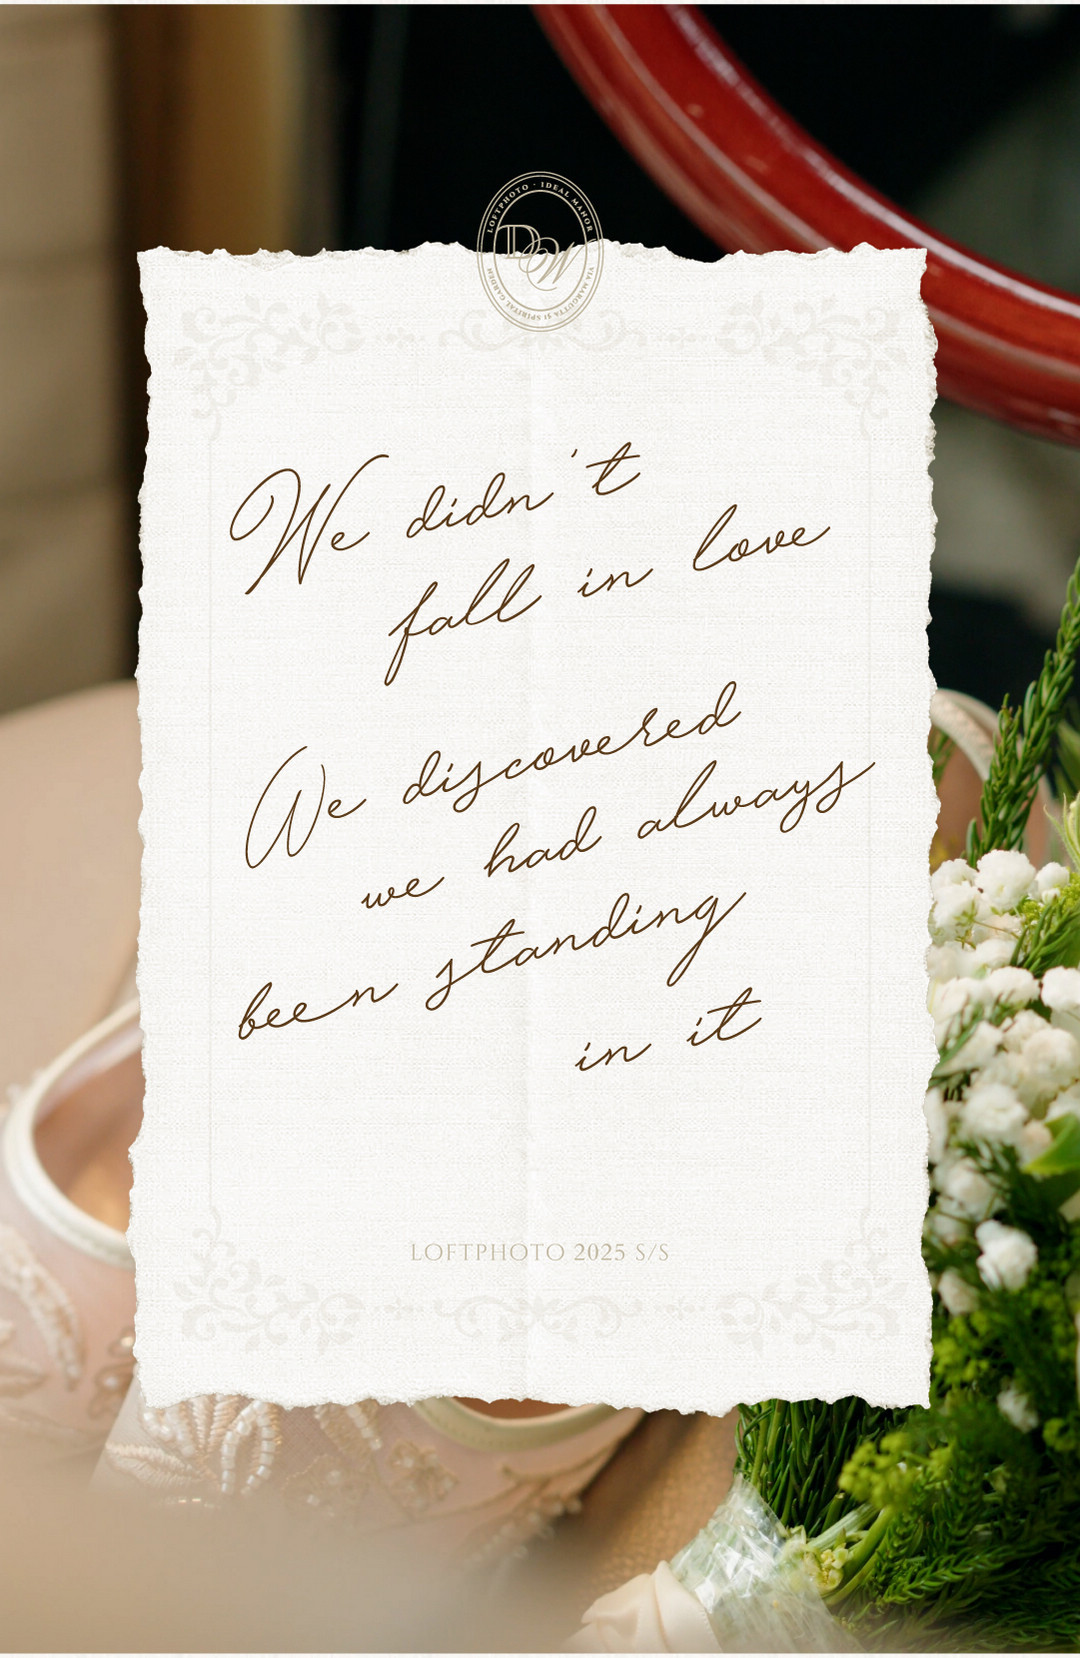 LOFTPHOTO · IDEAL MANOR
VIA MARGUTTA 51 SPIRITAL GARDEN
DW
We didn't
fall in love
We discovered
we had always
been standing
in it
LOFTPHOTO 2025 S/S